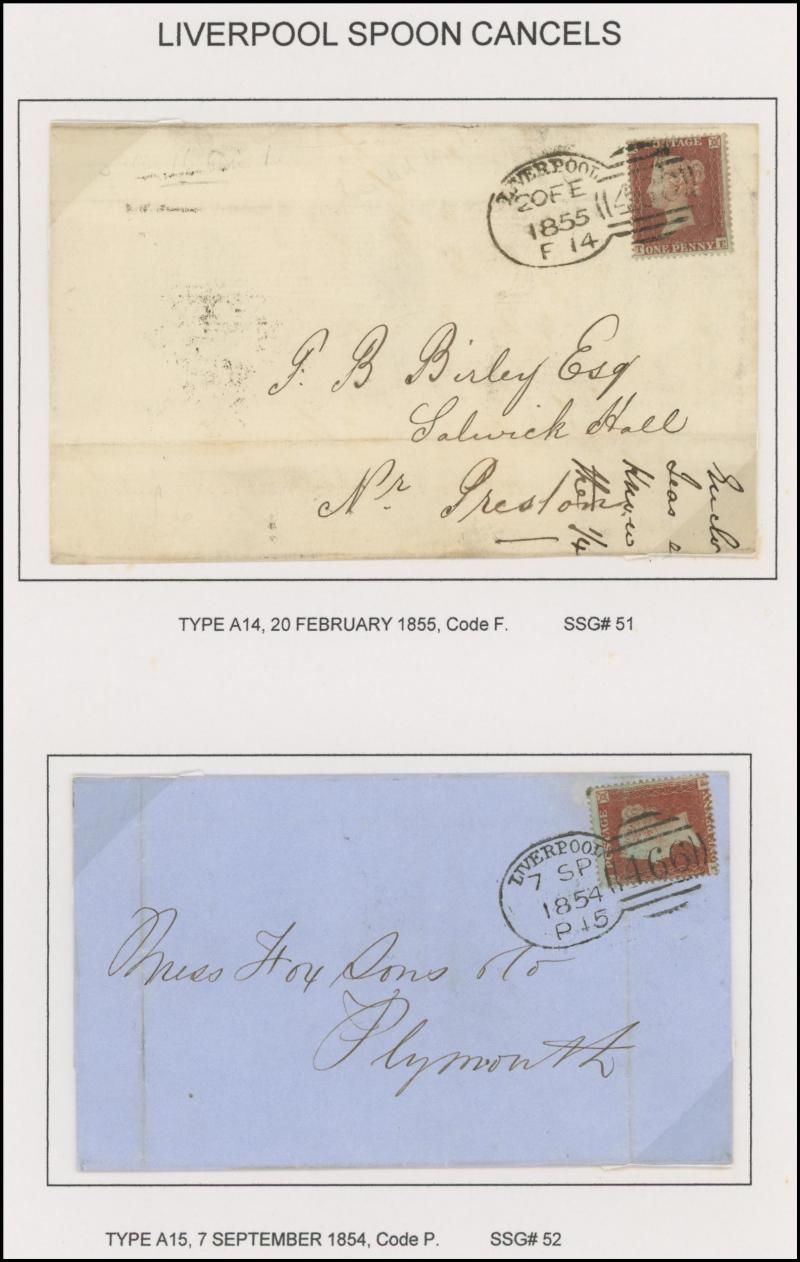 LIVERPOOL SPOON CANCELS
LIVERPOOL
20 FE
1855
F 14
POSTAGE
T ONE PENNY E
F. B Birley Esq
Salwick Hall
Nr Preston
Know
the 1/4
TYPE A14, 20 FEBRUARY 1855, Code F. SSG# 51
LIVERPOOL
7 SP
1854
P 15
466
POSTAGE
Mess Fox Sons & Co
Plymouth
TYPE A15, 7 SEPTEMBER 1854, Code P. SSG# 52